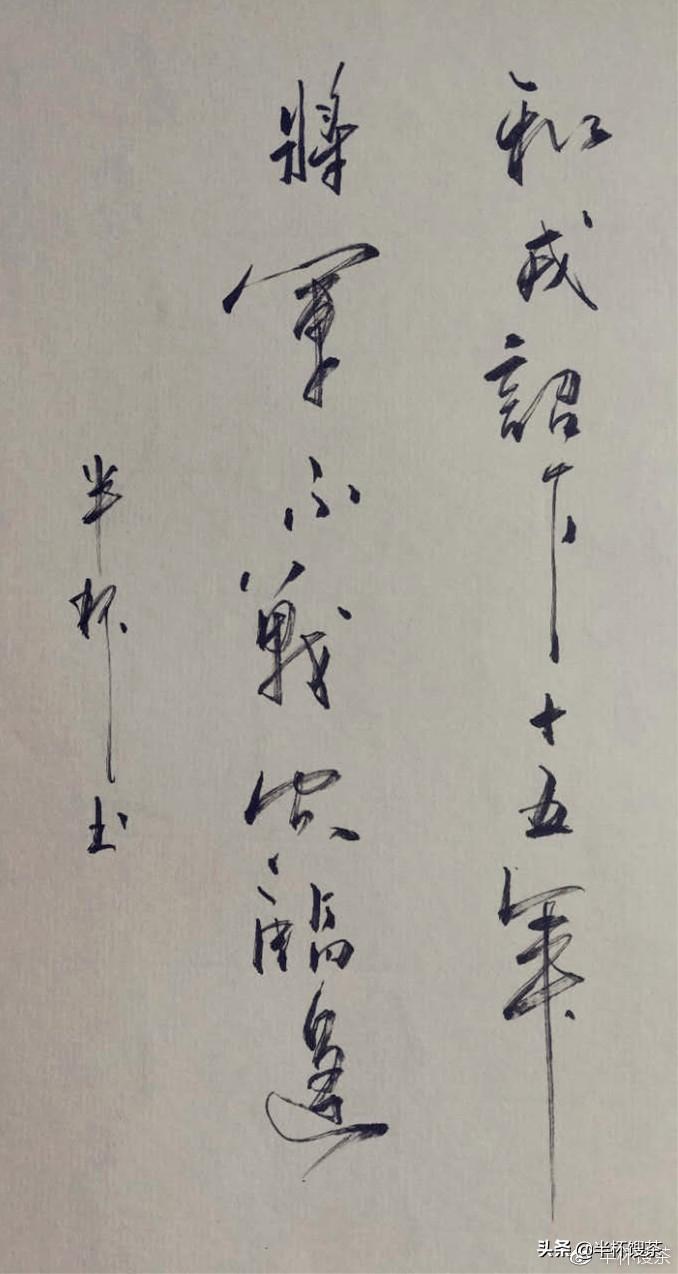 和戎詔下十五年
將軍不戰空臨邊
半杯书
头条 @半杯馊茶
@半杯馊茶